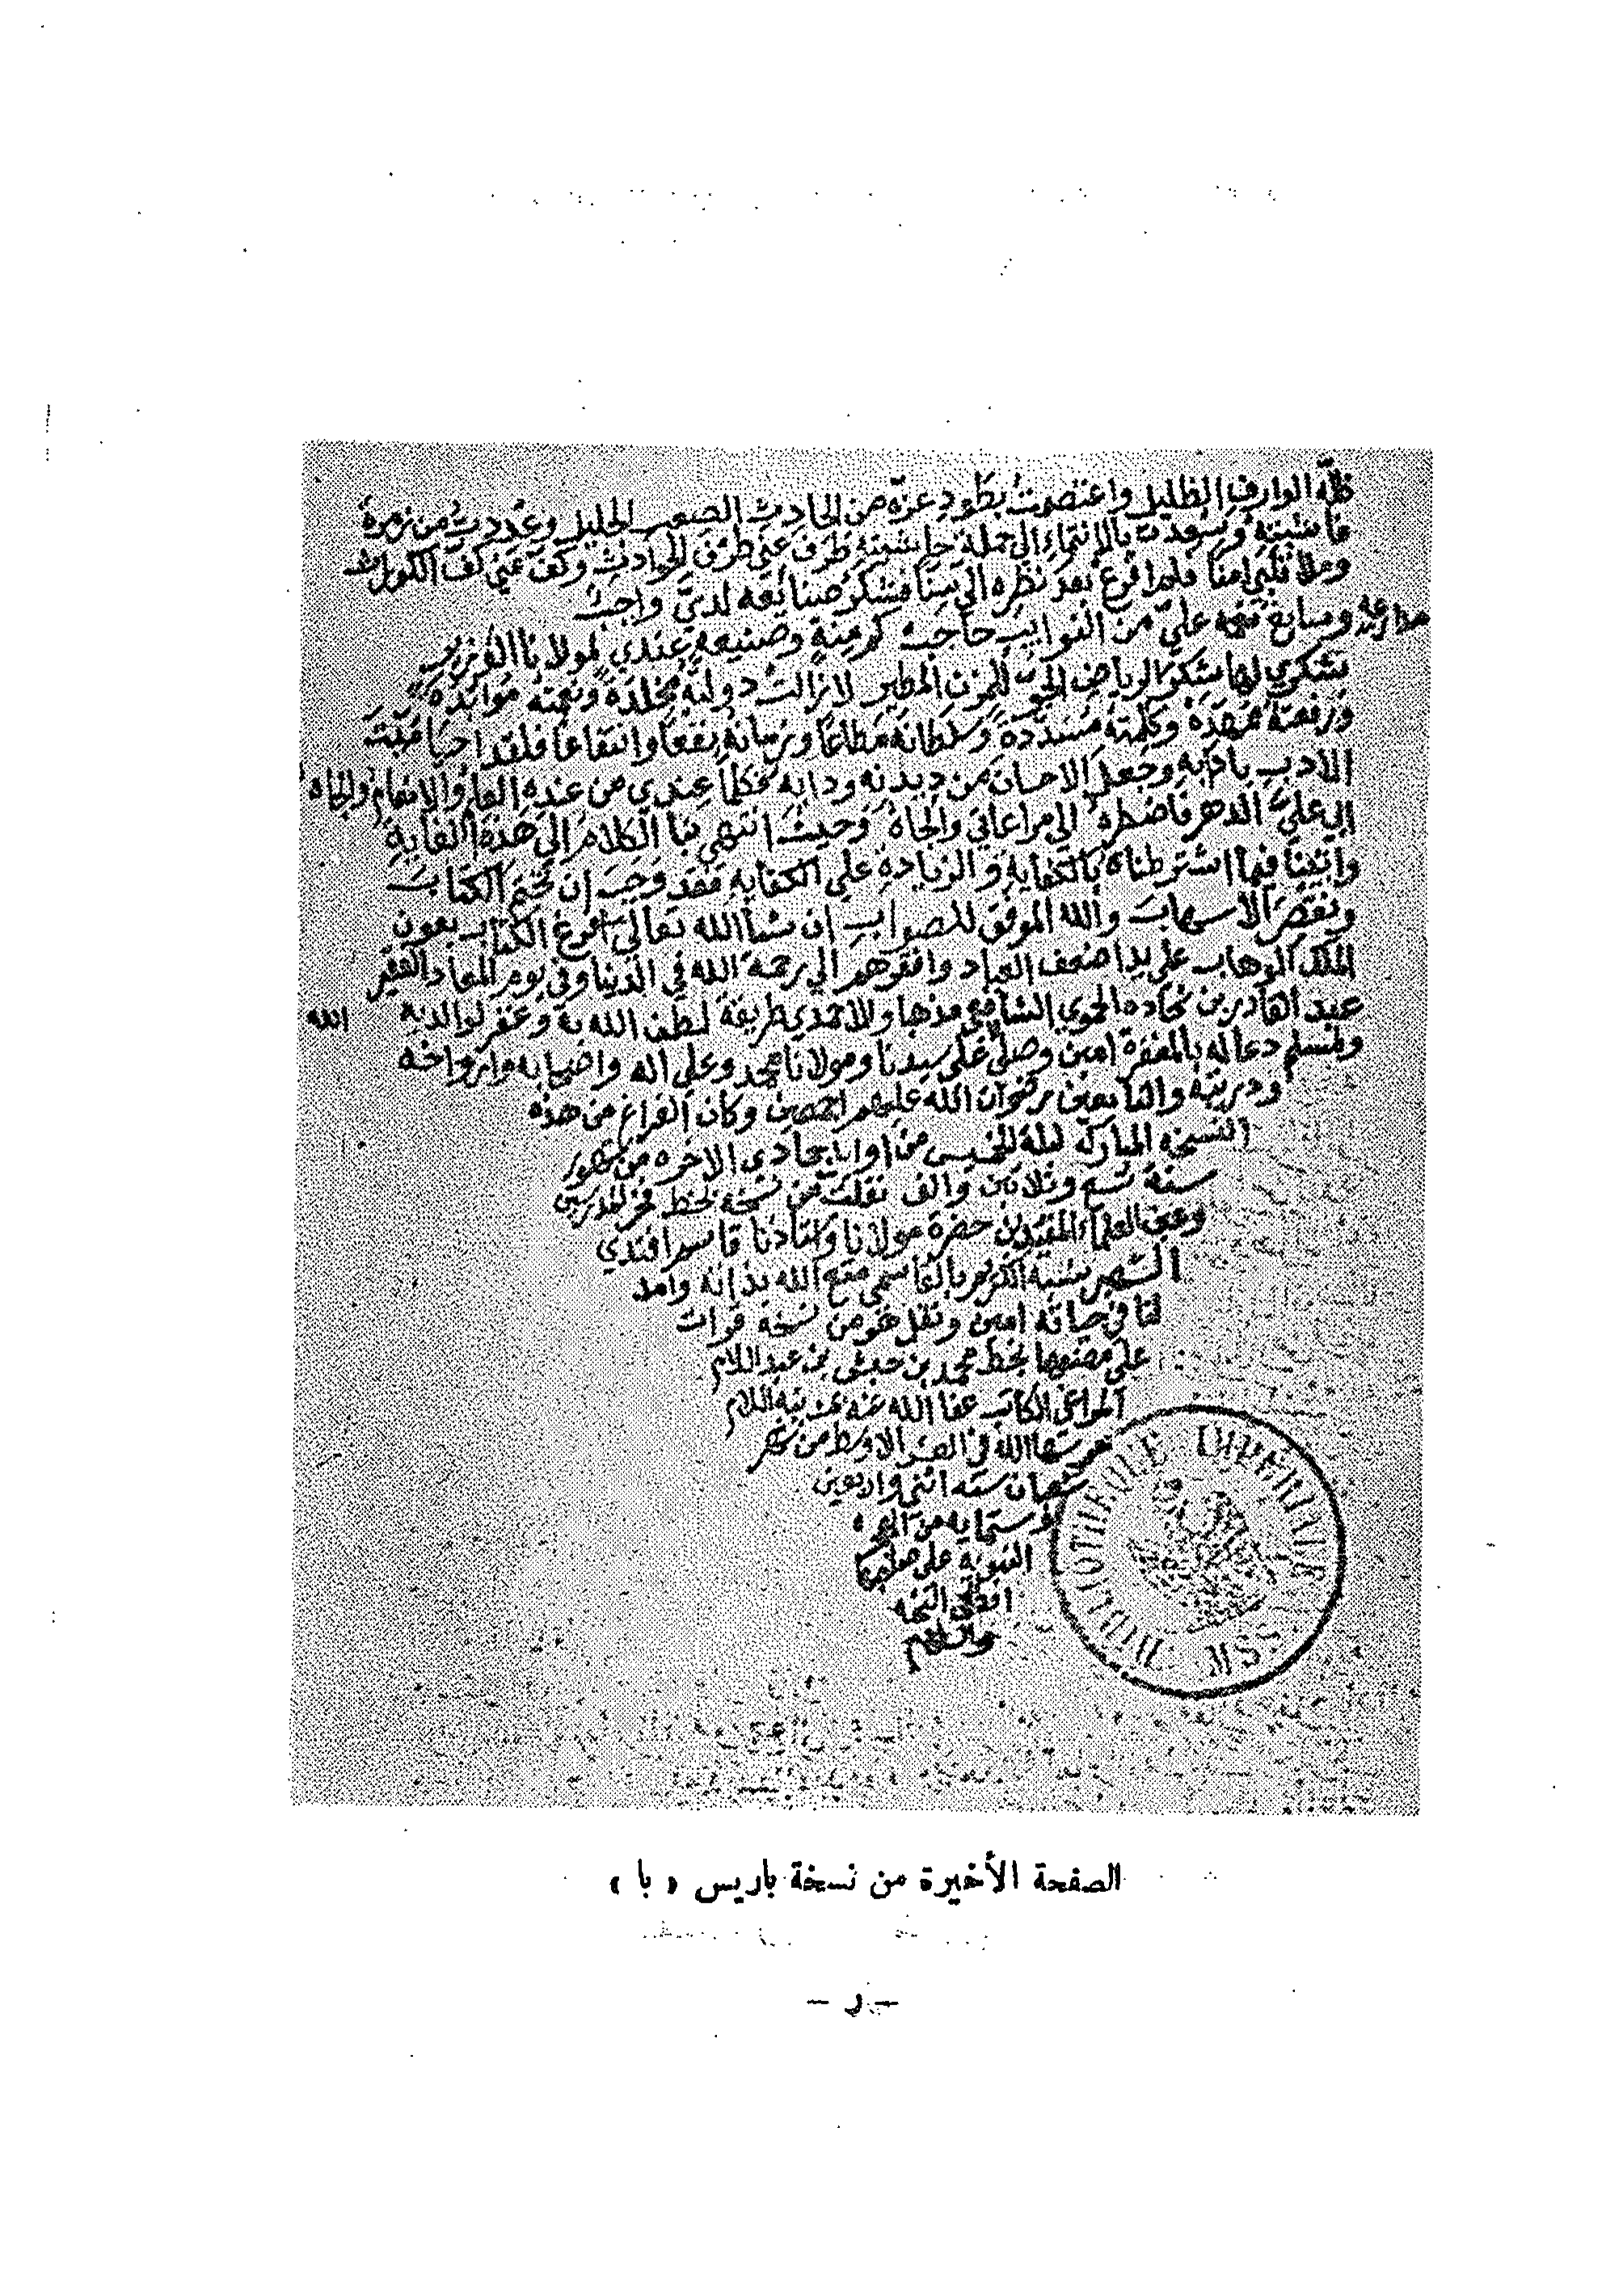 ظله الوارف الظليل واعتصمت بطود عزه من الحادث الصعب الجليل وعددت من زمرة
غاشيته وسعدت بالانتماء الى جملة حاشيته طرف عني طرف الحوادث وكف عني كف الكوارث
وملأ قلبي امنا فلم افرغ بعد نظره الي سنا فشكر صنائعه لدي واجب
وسابغ نعمه علي من النوايب حاجب كم منة وصنيعة عندي لمولانا الوزير
شكري لها شكر الرياض الحو للمزن المطير لا زالت دولته مخلدة ونعمته موائده
ورفعته ممهدة وكلمته مسددة وسلطانه مطاعا وزمانه نفعا وانتفاعا فلقد احيا ميت
الادب بادابه وجعل الاحسان من ديدنه ودابه فكلما عندي من عنده العلم والانعام والجاه
الي علي الدهر فاضطره الى مراعاتي والجاه وحيث انتهى بنا الكلام الى هذه الغاية
واتينا فيما اشترطناه بالكفاية والزيادة على الكفاية فقد وجب ان نختم الكتاب
ونقصر الاسهاب والله الموفق للصواب ان شا الله تعالى فرغ الكتاب بعون
الملك الوهاب على يد اضعف العباد وافقرهم الى رحمة الله في الدنيا وفي يوم المعاد الفقير
عبد القادر بن الحموي الشافعي مذهبا والاحمدي طريقة لطف الله به وغفر لوالديه
ولمسلم دعا له بالمغفرة امين وصلى الله على سيدنا ومولانا محمد وعلى اله واصحابه وازواجه
وذريته والتابعين رضوان الله عليهم اجمعين وكان الفراغ من هذه
النسخة المباركة ليلة الخميس من اوايل جمادى الاخره من شهور
سنة تسع وثلاثين والف نقلت من نسخة بخط فخر المدرسين
وعين العلماء المفيدين حضرة مولانا واستاذنا قاسم افندي
الشهير بنسبه الكريم بالقاسمي متع الله بذاته وامد
لنا في حياته امين ونقل هو من نسخة قرات
على مصنفها بخط محمد بن حبشي بن عبد السلام
المراغي الكاتب عفا الله عنه بمدينة السلام
حرسها الله في العشر الاوسط من شهر
شعبان سنه اثني واربعين
وستمايه من الهجره
النبوية على صاحبها
افضل التحيه
والسلام
BIBLIOTHEQUE IMPERIALE MSS.
الصفحة الأخيرة من نسخة باريس « با »
- ر -